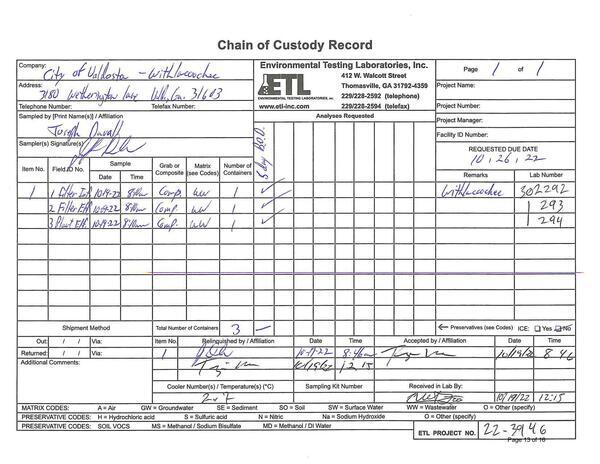 Chain of Custody Record
Company: City of Valdosta - Withlacoochee
Address:
3180 Wetherington Lane Vld, Ga. 31603
Telephone Number: Telefax Number:
Environmental Testing Laboratories, Inc.
ETL
ENVIRONMENTAL TESTING LABORATORIES, INC.
412 W. Walcott Street
Thomasville, GA 31792-4359
229/228-2592 (telephone)
229/228-2594 (telefax)
www.etl-inc.com
Page 1 of 1
Project Name:
Project Number:
Project Manager:
Facility ID Number:
Sampled by [Print Name(s)] / Affiliation
Joseph
Sampler(s) Signature(s)
Analyses Requested
5 day B.O.D.
REQUESTED DUE DATE
10, 26, 22
Item No. Field ID No. Sample Date Time Grab or Composite Matrix (see Codes) Number of Containers Remarks Lab Number
1 1 Filter Inf. 10-19-22 Comp. WW 1 ✓ Withlacoochee 302292
2 Filter Eff. 10-19-22 Comp. WW 1 ✓ 293
3 Plant Eff. 10-19-22 Comp. WW 1 ✓ 294
Shipment Method Total Number of Containers 3 ← Preservatives (see Codes) ICE: Yes No
Out: / / Via: Item No. Relinquished by / Affiliation Date Time Accepted by / Affiliation Date Time
Returned: / / Via: 1 10-19-22 8:46am 10/19/22 8:46
Additional Comments: 10/19/22 12:15
Cooler Number(s) / Temperature(s) (°C) Sampling Kit Number Received in Lab By: Date Time
10/19/22 12:15
MATRIX CODES: A = Air GW = Groundwater SE = Sediment SO = Soil SW = Surface Water WW = Wastewater O = Other (specify)
PRESERVATIVE CODES: H = Hydrochloric acid S = Sulfuric acid N = Nitric Na = Sodium Hydroxide O = Other (specify)
PRESERVATIVE CODES: SOIL VOCS MS = Methanol / Sodium Bisulfate MD = Methanol / DI Water
ETL PROJECT NO. 22-3946
Page 13 of 16